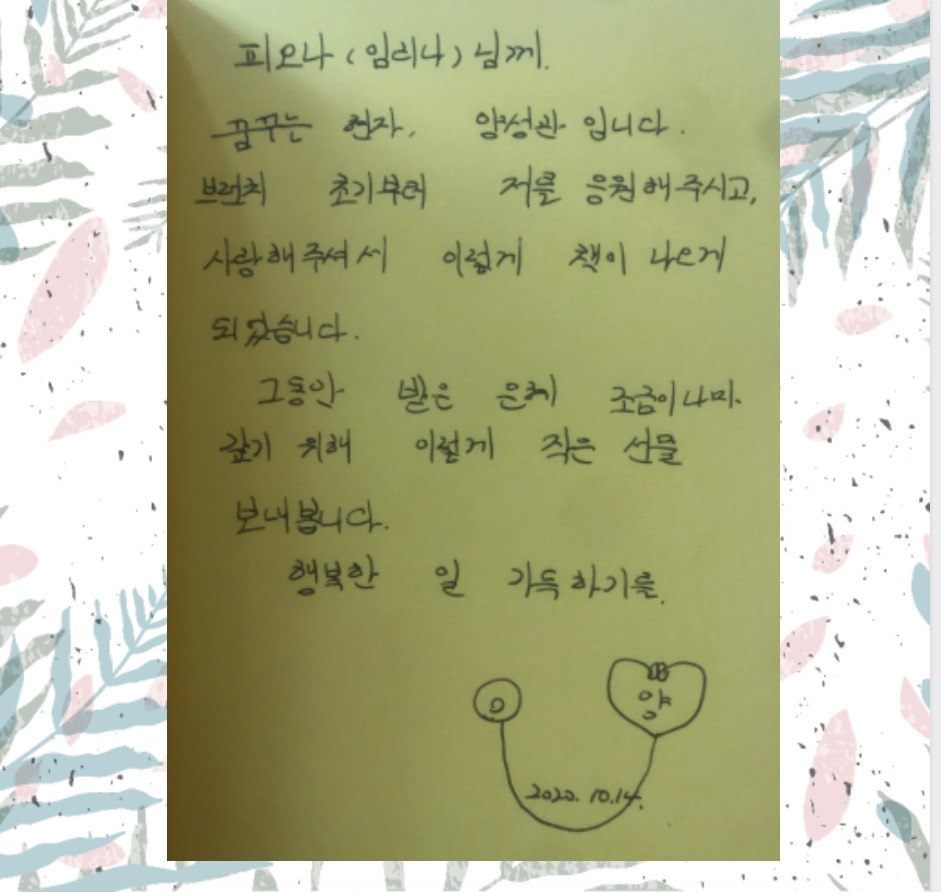 피오나 (임리나) 님께.
꿈꾸는 현자, 양성관 입니다.
브런치 초기부터 저를 응원해 주시고,
사랑해 주셔서 이렇게 책이 나오게
되었습니다.
그동안 받은 은혜 조금이나마
갚기 위해 이렇게 작은 선물
보내봅니다.
행복한 일 가득하기를.
양
2020. 10.14.